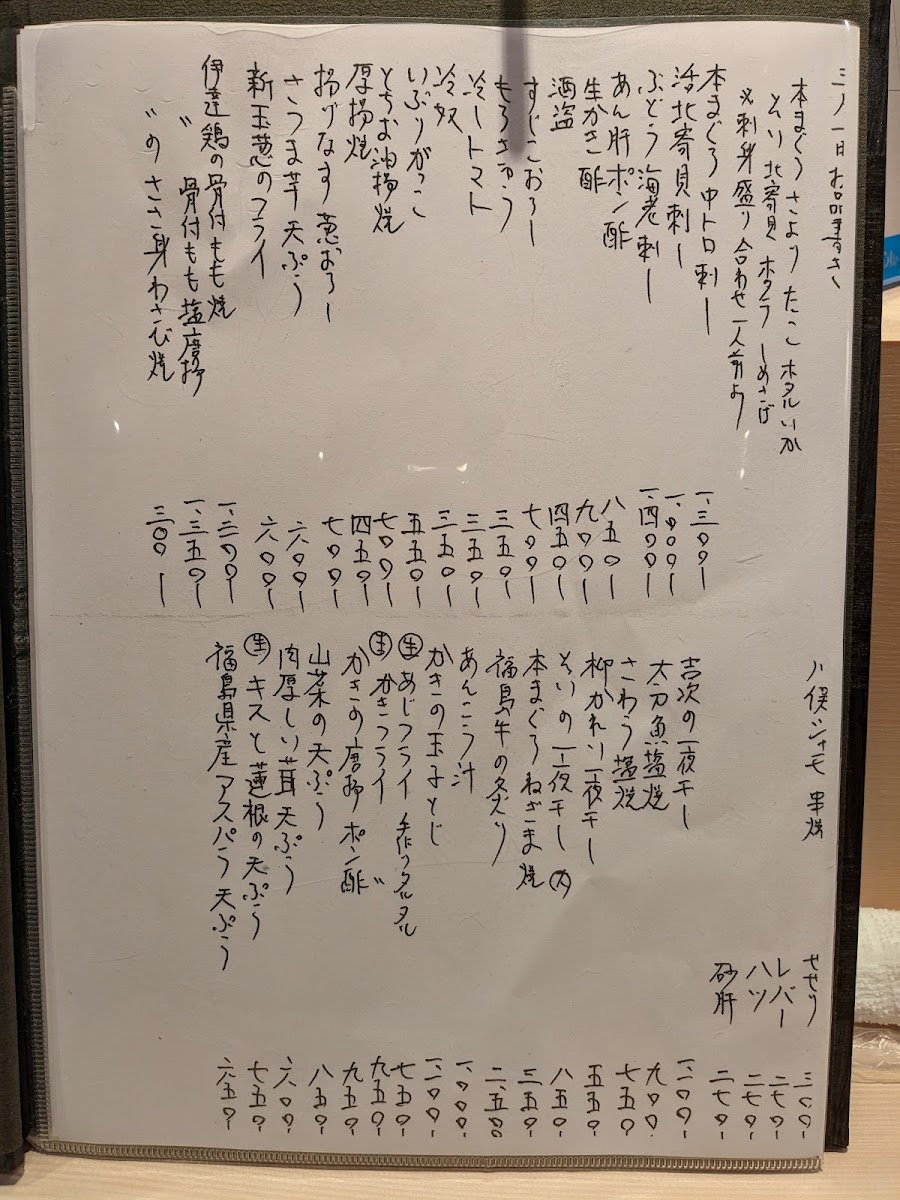 三/一日 お品書き
本まぐろ さより たこ ホタルいか
そい 北寄貝 ホタテ しめさば
※刺身盛り合わせ一人前より
本まぐろ 中トロ刺し 一、三〇〇-
活北寄貝刺し 一、〇〇〇-
ぶどう海老刺し 一、四〇〇-
あん肝ポン酢 八五〇-
生かき酢 九〇〇-
酒盗 四五〇-
すじこおろし 七〇〇-
もろきゅう 三五〇-
冷しトマト 三五〇-
冷奴 三五〇-
いぶりがっこ 五五〇-
とちお油揚焼 七〇〇-
厚揚焼 四五〇-
揚げなす 葱おろし 七〇〇-
さつま芋天ぷら 六〇〇-
新玉葱のフライ 六〇〇-
伊達鶏の骨付もも焼 一、二〇〇-
〃 骨付もも塩唐揚 一、三五〇-
〃のささ身わさび焼 三〇〇-
川俣シャモ 串焼 せせり 三〇〇-
レバー 二七〇-
ハツ 二七〇-
砂肝 二七〇-
吉次の一夜干し
太刀魚塩焼 九〇〇-
さわら塩焼 七五〇
柳かれい一夜干し 五五〇-
そいの一夜干し(大) 八五〇-
本まぐろねぎま焼 三五〇-
福島牛の炙り 二、五〇〇
あんこう汁 一、〇〇〇-
かきの玉子とじ
生あじフライ 手作りタルタル 七五〇-
生かきフライ 〃 九五〇-
かきの唐揚 ポン酢 九五〇-
山菜の天ぷら 八五〇-
肉厚しい茸天ぷら 六〇〇-
生キスと蓮根の天ぷら 七五〇-
福島県産アスパラ天ぷら 六五〇-